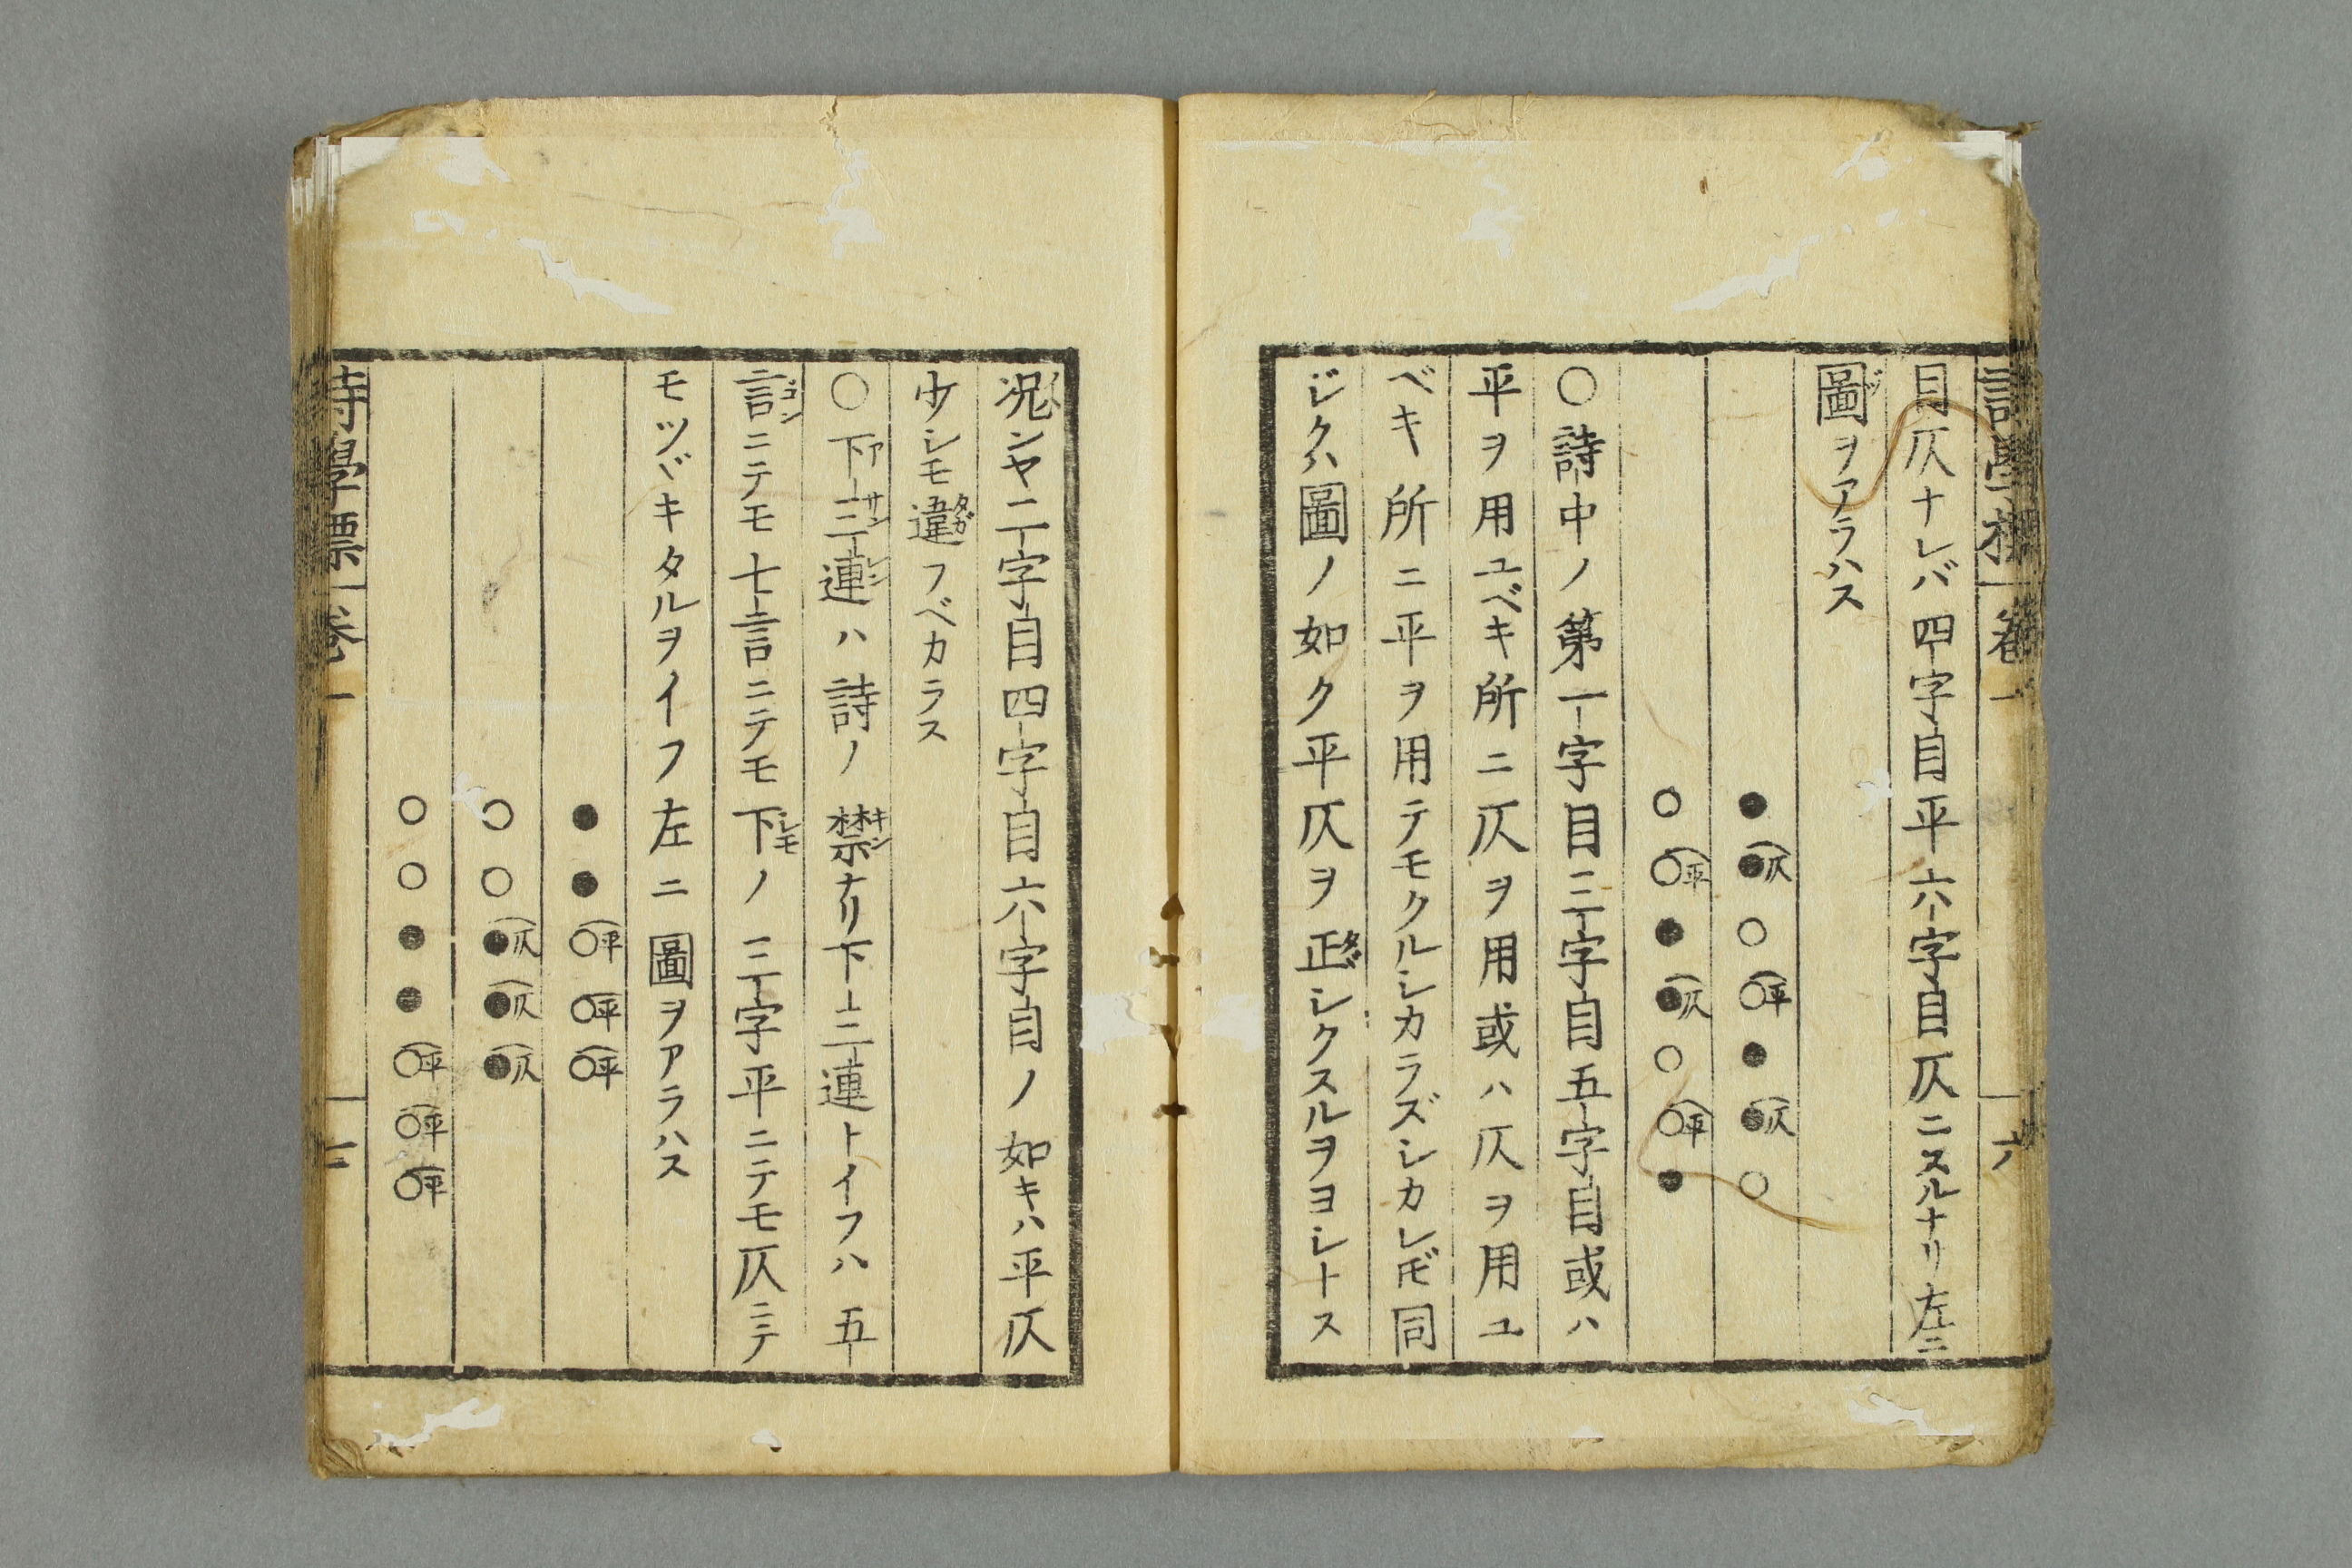 目仄ナレバ四字目平六字目仄ニスルナリ左ニ
圖ヲアラハス
●●仄○○平●●仄○
○○平●●仄○○平●
○詩中ノ第一字目三字目五字目或ハ
平ヲ用ユベキ所ニ仄ヲ用或ハ仄ヲ用ユ
ベキ所ニ平ヲ用テモクルシカラズシカレ𪜈同
ジクハ圖ノ如ク平仄ヲ正シクスルヲヨシトス
況ンヤ二字目四字目六字目ノ如キハ平仄
少シモ違フベカラス
○下三連ハ詩ノ禁ナリ下三連トイフハ五
言ニテモ七言ニテモ下ノ三字平ニテモ仄ニテ
モツヾキタルヲイフ左ニ圖ヲアラハス
●●○平○平○平
○○●仄●仄●仄
○○●●○平○平○平
詩學標 卷一